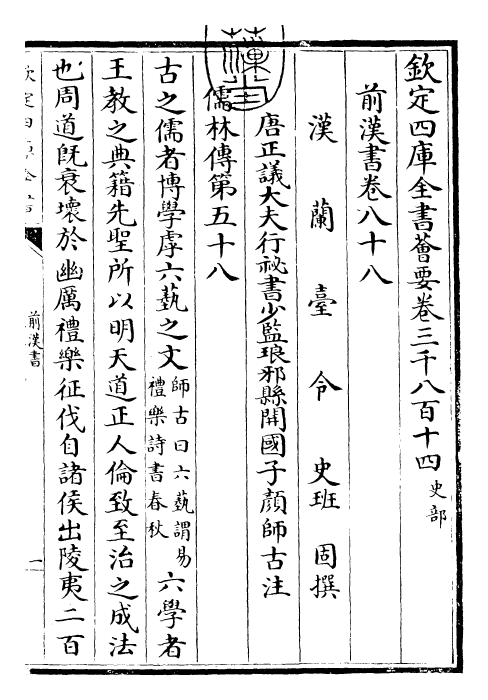 欽定四庫全書薈要卷三千八百十四 史部
前漢書卷八十八
漢蘭臺令史班固撰
唐正議大夫行祕書少監琅邪縣開國子顏師古注
儒林傳第五十八
古之儒者博學虖六蓺之文師古曰六蓺謂易禮樂詩書春秋六學者
王教之典籍先聖所以明天道正人倫致至治之成法
也周道既衰壞於幽厲禮樂征伐自諸侯出陵夷二百
欽定四庫全書
前漢書
一